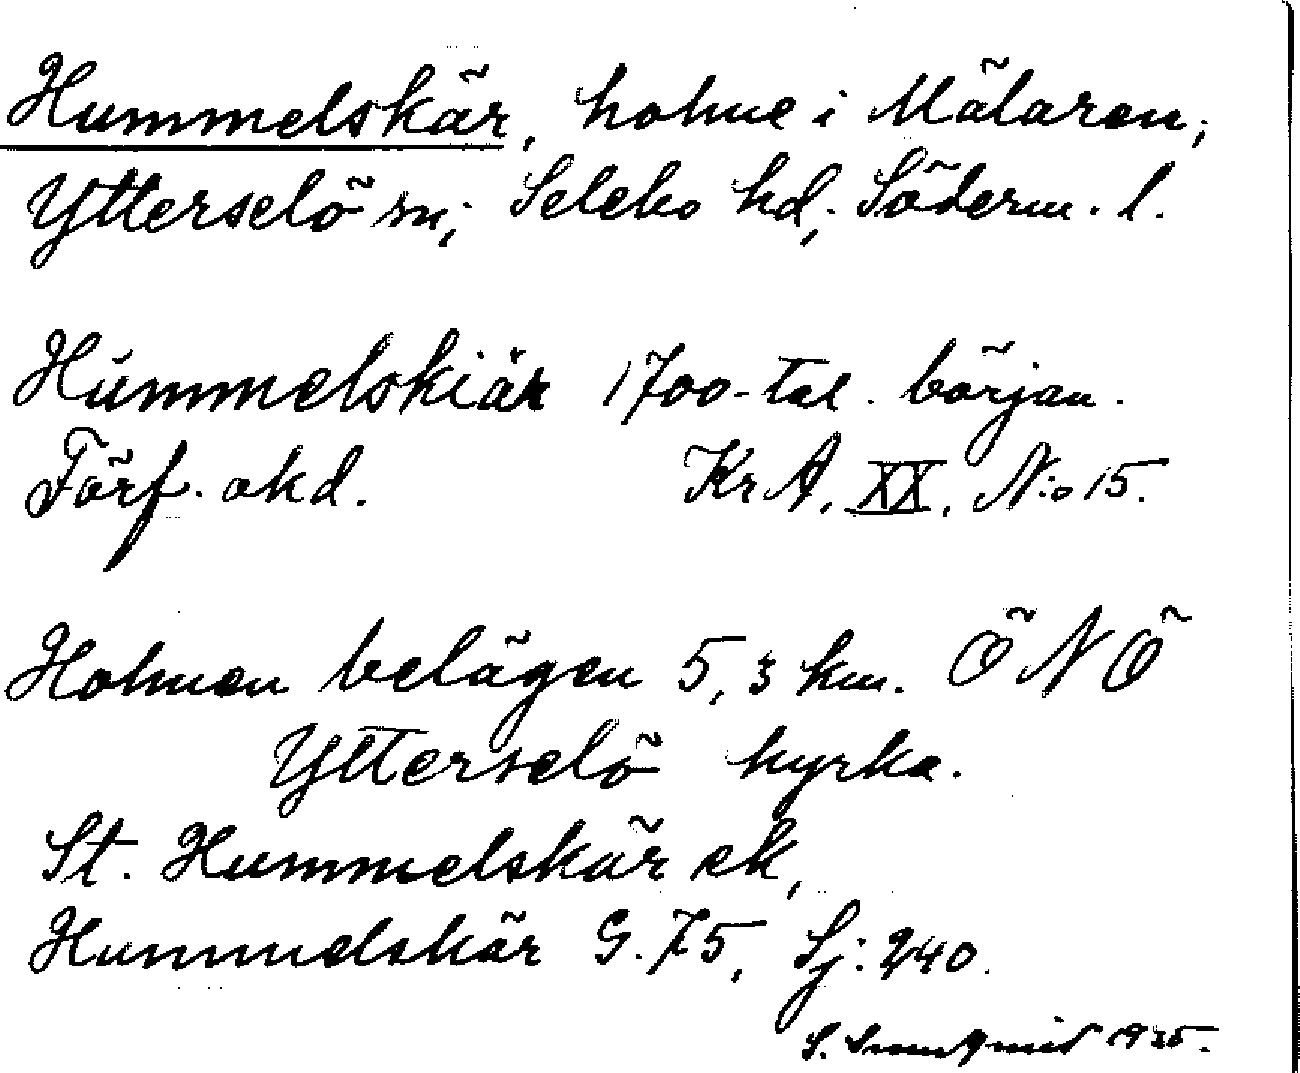 Hummelskär, holme i Mälaren;
Ytterselö sn; Selebo hd; Söderm. l.
Hummelskiär 1700-tal. början.
Förf. okd. Kr A, XX, N:o 15.
Holmen belägen 5,3 km. ÖNÖ
Ytterselö kyrka.
St. Hummelskär ek,
Hummelskär G. 75, Sj: 240.
S. 1935.